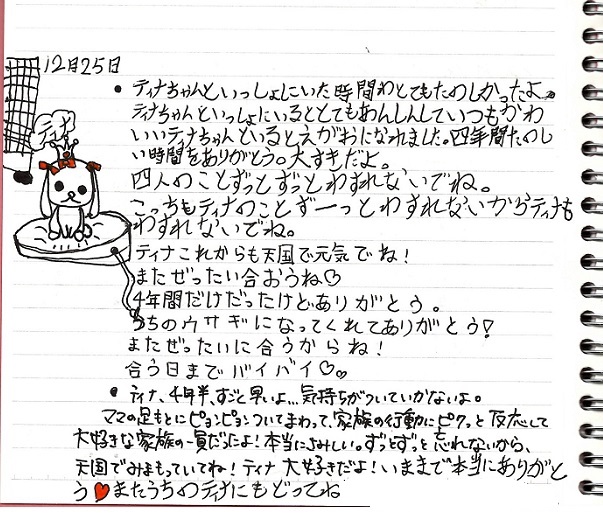 12月25日
• ティナちゃんといっしょにいた時間わとてもたのしかったよ。
ティナちゃんといっしょにいるととてもあんしんしていつもかわ
いいティナちゃんといるとえがおになれました。四年間たのし
い時間をありがとう。大すきだよ。
四人のことずっとずっとわすれないでね。
こっちもティナのことずーっとわすれないからティナも
わすれないでね。
ティナ
ティナこれからも天国で元気でね!
またぜったい合おうね♡
4年間だけだったけどありがとう。
うちのウサギになってくれてありがとう!
またぜったいに合うからね!
合う日までバイバイ♡
• ティナ、4年半、すごく早いよ...気持ちがついていかないよ。
ママの足もとにピョンピョンついてまわって、家族の行動にピクッと反応して
大好きな家族の一員だったよ!本当にさみしい。ずっとずっと忘れないから、
天国でみまもっていてね!ティナ 大好きだよ!いままで本当にありがと
う♥またうちのティナにもどってね